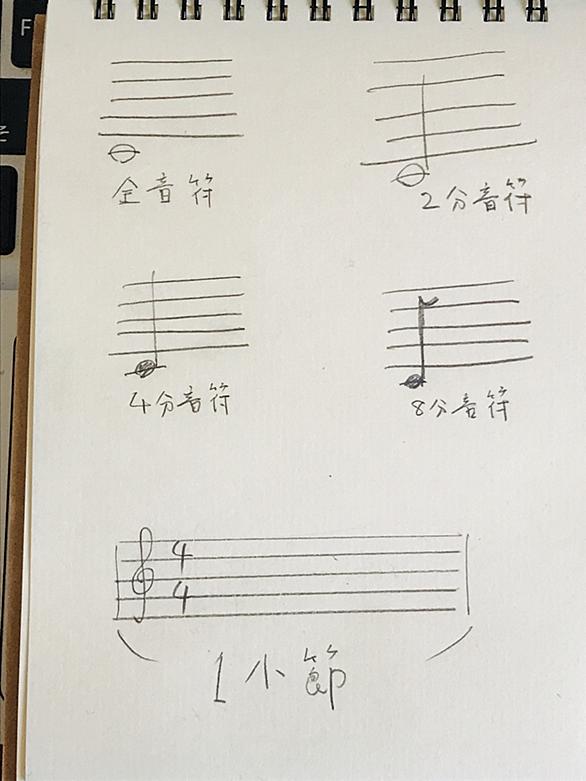 全音符
2分音符
4分音符
8分音符
4
4
1小節
F